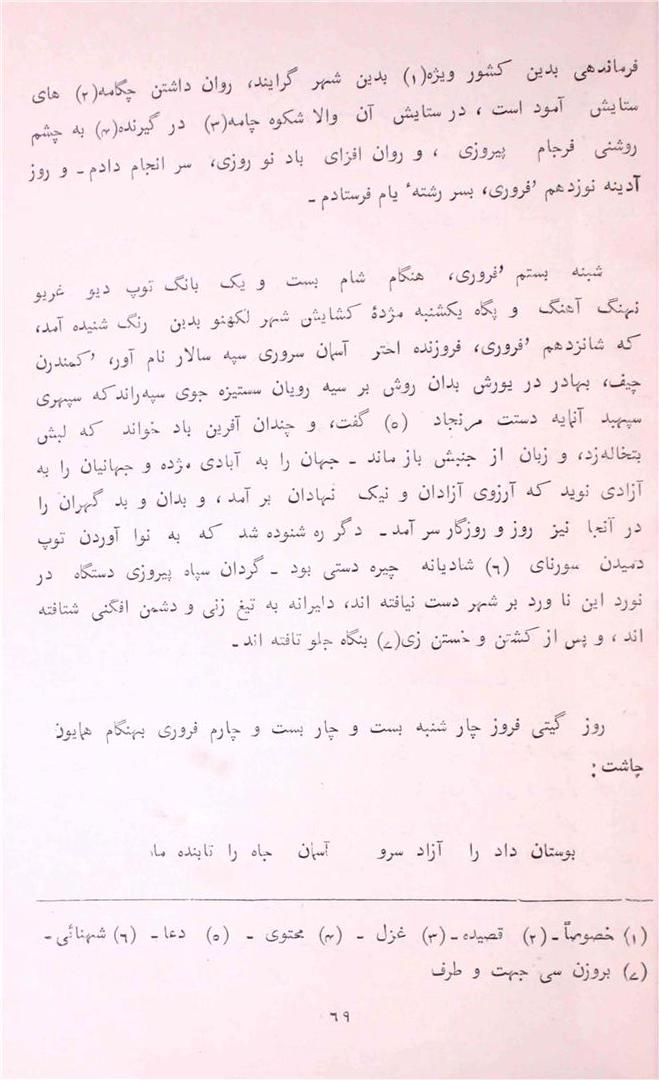 فرماندهی بدین کشور ویژه(۱) بدین شهر گرایند، روان داشتن چگامه(۲) های
ستایش آمود است ، در ستایش آن والا شکوه چامه(۳) در گیرنده(۴) به چشم
روشنی فرجام پیروزی ، و روان افزای باد نو روزی، سر انجام دادم ـ و روز
آدینه نوزدهم ’فروری، بسر رشتهٔ یام فرستادم ـ
شبنه بستم ’فروری، هنگام شام بست و یک بانگ توپ دیو غریو
نهنگ آهنگ و پگاه یکشنبه مژدۀ کشایش شهر لکهنو بدین رنگ شنیده آمد،
که شانزدهم ’فروری، فروزنده اختر آسمان سروری سپه سالار نام آور، ’کمندرن
چیف، بهادر در یورش بدان روش بر سیه رویان ستیزه جوی سپه‌راندکه سپهری
سپهبد آنمایه دستت مرنجاد (۵) گفت، و چندان آفرین باد خواند که لبش
بتخاله‌زد، و زبان از جنبش باز ماند ـ جهان را به آبادی مژده و جهانیان را به
آزادی نوید که آرزوی آزادان و نیک نهادان بر آمد ، و بدان و بد گهران را
در آنجا نیز روز و روزگار سر آمد ـ دگر ره شنوده شد که به نوا آوردن توپ
دمیدن سورنای (۶) شادیانه چیره دستی بود ـ گردان سپاه پیروزی دستگاه در
نورد این نا ورد بر شهر دست نیافته اند، دلیرانه به تیغ زنی و دشمن افگنی شتافته
اند ، و پس از کشتن و خستن زی(۷) بنگاه جلو تافته اند ـ
روز گیتی فروز چار شنبه بست و چار بست و چارم فروری بهنگام همایون
چاشت :
بوستان داد را آزاد سرو آسمان جاه را تابنده ماہ
(۱) خصوصاً ـ (۲) قصیده ـ (۳) غزل ـ (۴) محتوی ـ (۵) دعا ـ (۶) شهنائی ـ
(۷) بروزن سی جهت و طرف
۶۹